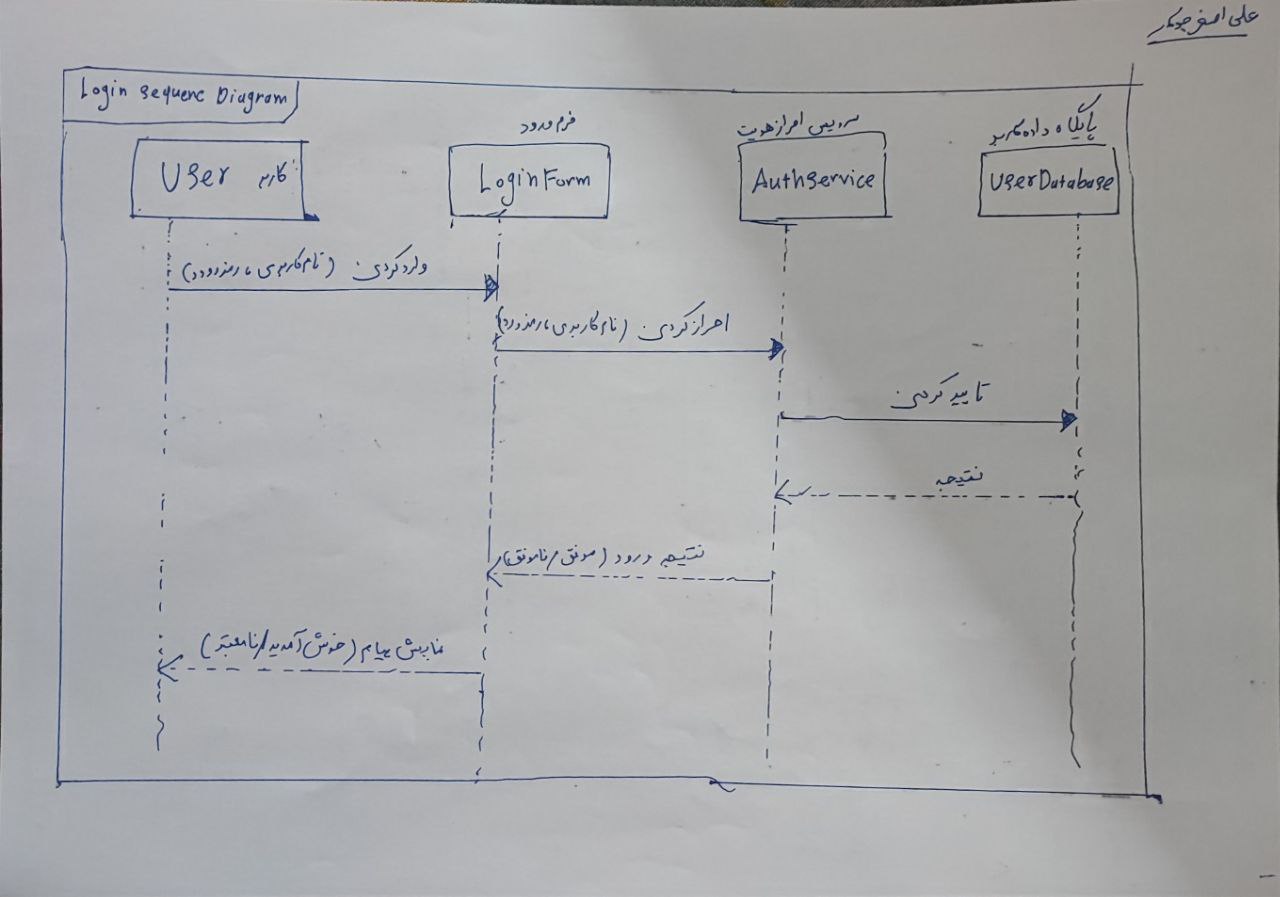 علی اصغر
Login sequenc Diagram
User کاربر
فرم ورود
LoginForm
سرویس احراز هویت
Authservice
پایگاه داده کاربر
UserDatabase
وارد کردن (نام کاربری، رمز ورود)
احراز کردن (نام کاربری، رمز ورود)
تایید کردن
نتیجه
نتیجه ورود (موفق/ناموفق)
نمایش پیام (خوش آمدید/نامعتبر)